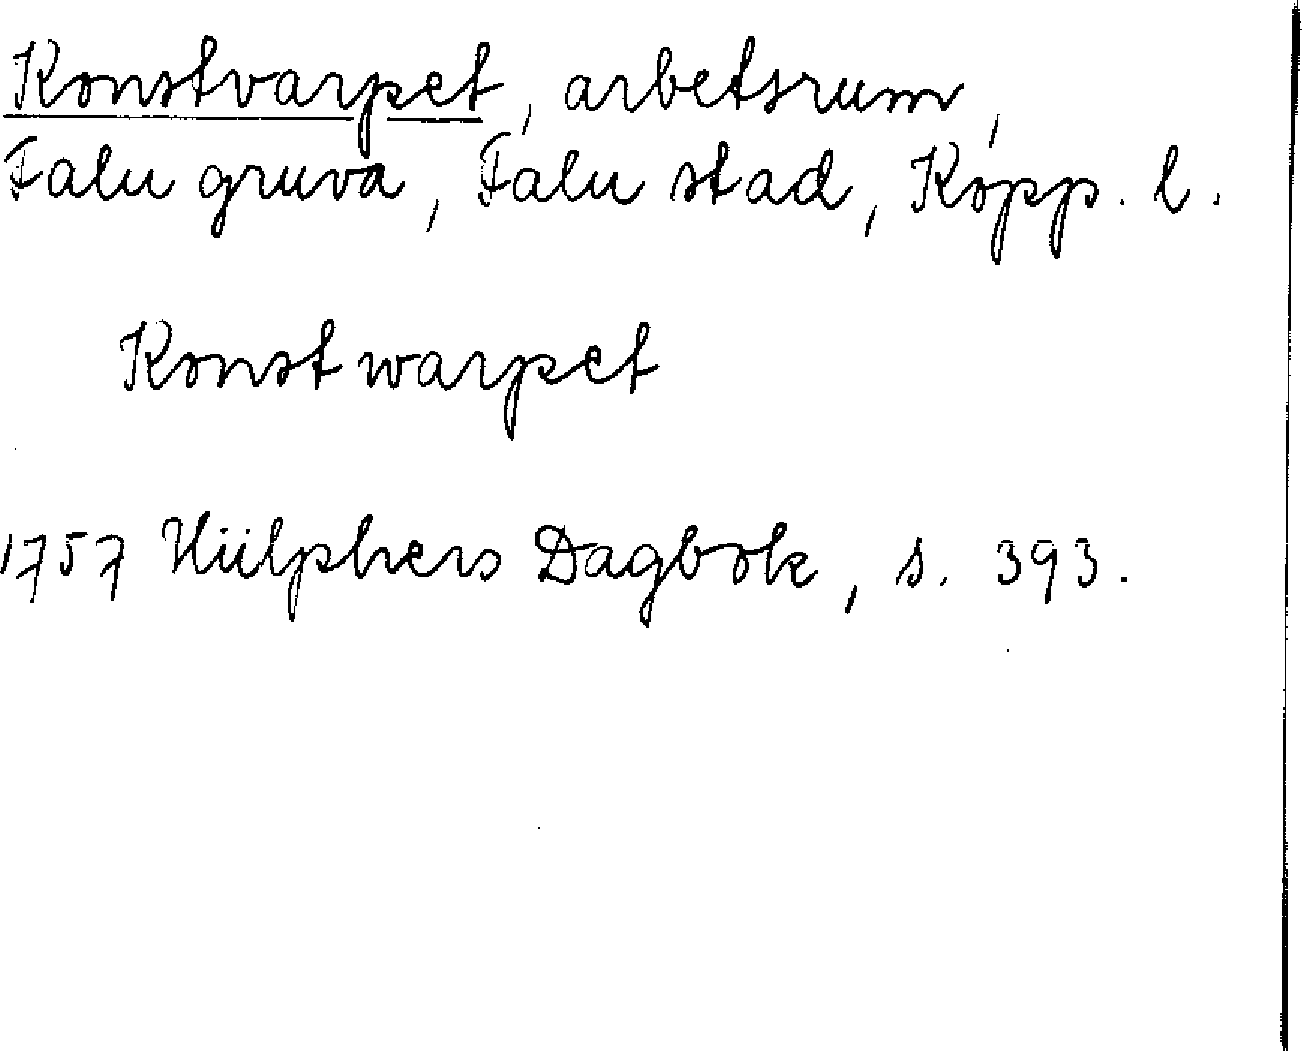 Konstvarpet, arbetsrum,
Falu gruva, Falu stad, Kopp. l.
Konstwarpet
1757 Hülphers Dagbok, s. 393.